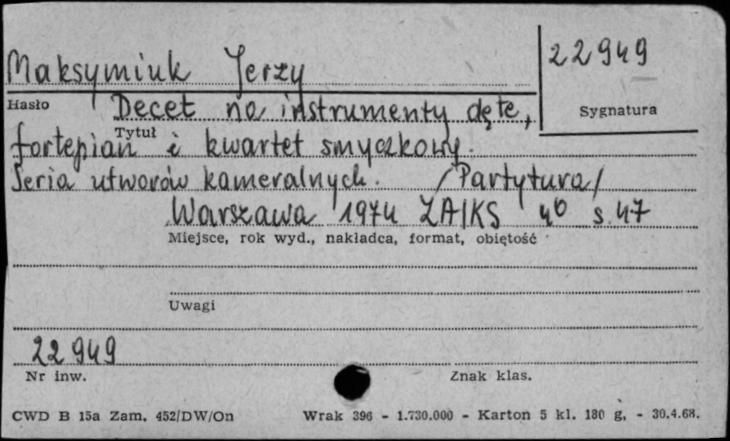 22949
Maksymiuk Jerzy
Hasło Decet na instrumenty dęte,
Sygnatura
Tytuł
fortepian i kwartet smyczkowy.
Seria utworów kameralnych. /Partytura/
Warszawa 1974 ZAIKS 4° s. 47
Miejsce, rok wyd., nakładca, format, objętość
Uwagi
22 949
Nr inw. Znak klas.
CWD B 15a Zam. 452/DW/On Wrak 396 - 1.730.000 - Karton 5 kl. 180 g. - 30.4.68.